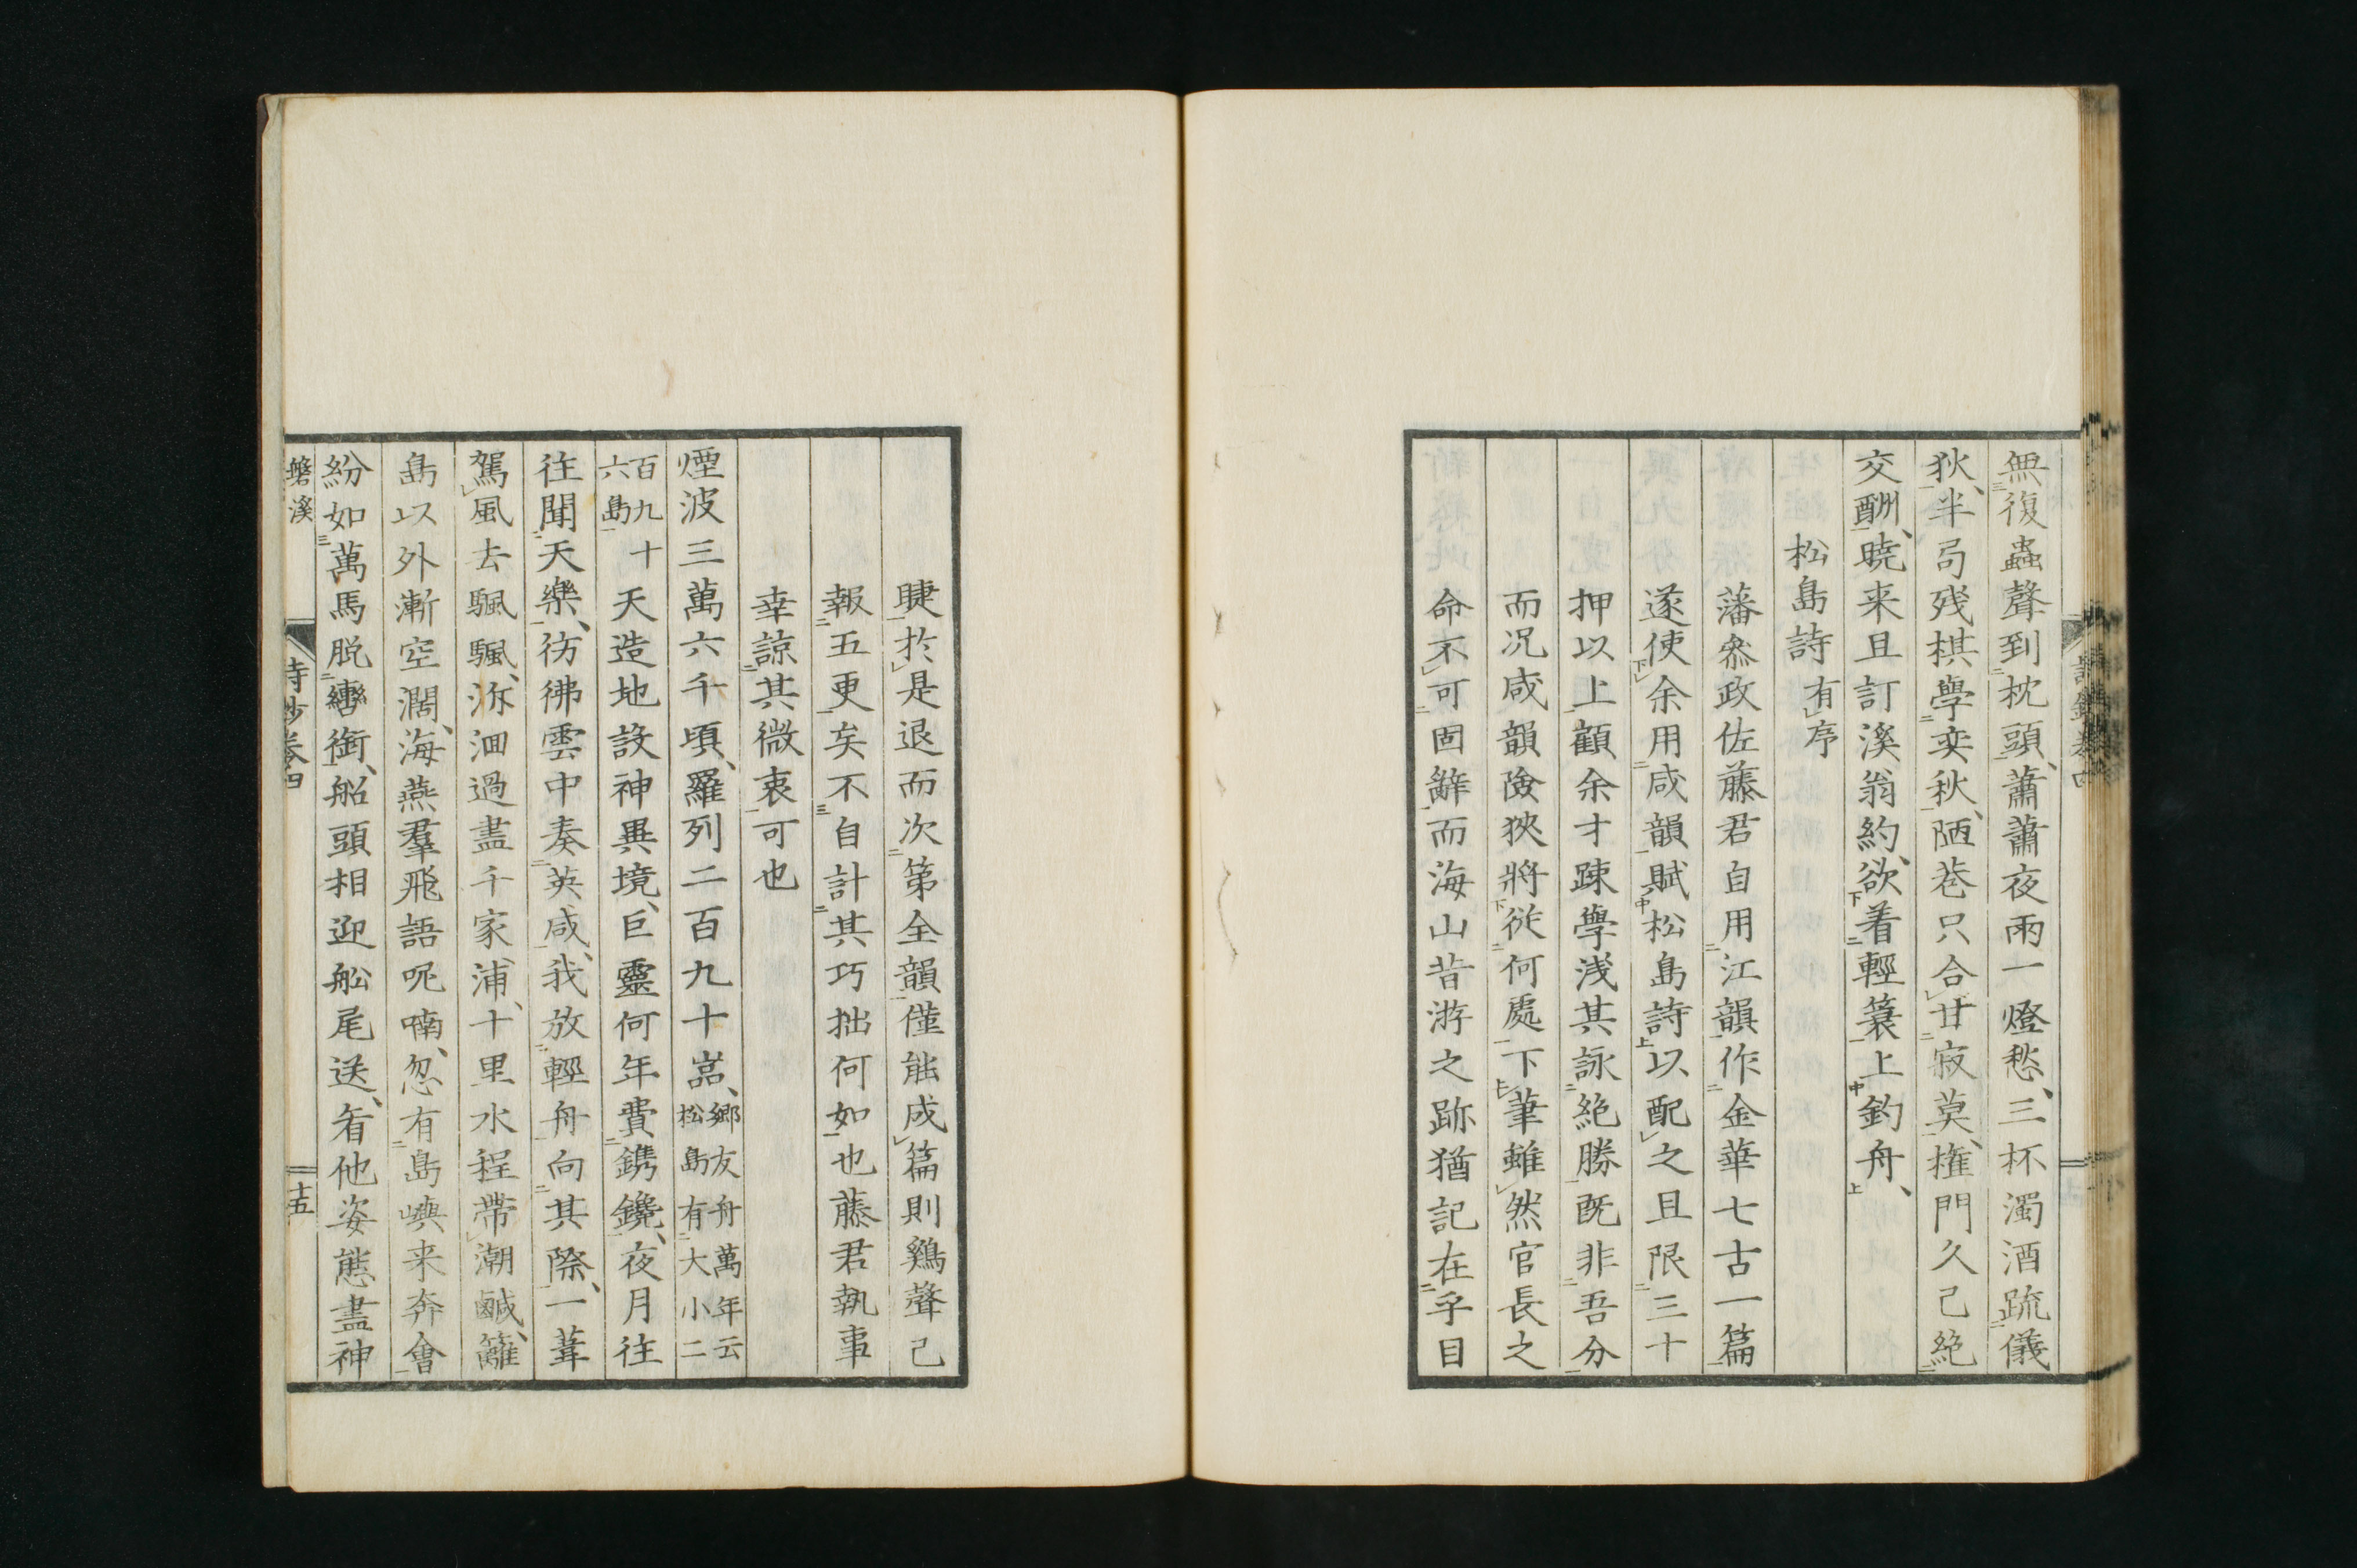 無復蟲聲到枕頭、蕭蕭夜雨一燈愁、三杯濁酒疏儀
狄、半局残棋學奕秋、陋巷只合甘寂莫、權門久已絶
交酬、曉来且訂溪翁約、欲着輕簑上釣舟、
松島詩有序
藩叅政佐藤君自用江韻作金華七古一篇
遂使余用咸韻賦松島詩以配之且限三十
押以上顧余才踈學浅其詠絶勝既非吾分
而况咸韻險狹將従何處下筆雖然官長之
命不可固辭而海山昔游之跡猶記在乎目
睫於是退而次第全韻僅能成篇則鷄聲已
報五更矣不自計其巧拙何如也藤君執事
幸諒其微衷可也
煙波三萬六千頃、羅列二百九十嵓、郷友舟萬年云松島有大小二
百九十六島天造地設神異境、巨靈何年費鐫鑱、夜月往
往聞天樂、彷彿雲中奏英咸、我放輕舟向其際、一葦
駕風去颿颿、泝洄過盡千家浦、十里水程帶潮鹹、籬
島以外漸空濶、海燕羣飛語呢喃、忽有島嶼来奔會
紛如萬馬脱轡銜、船頭相迎舩尾送、看他姿態盡神
磐溪
詩鈔卷四
十五